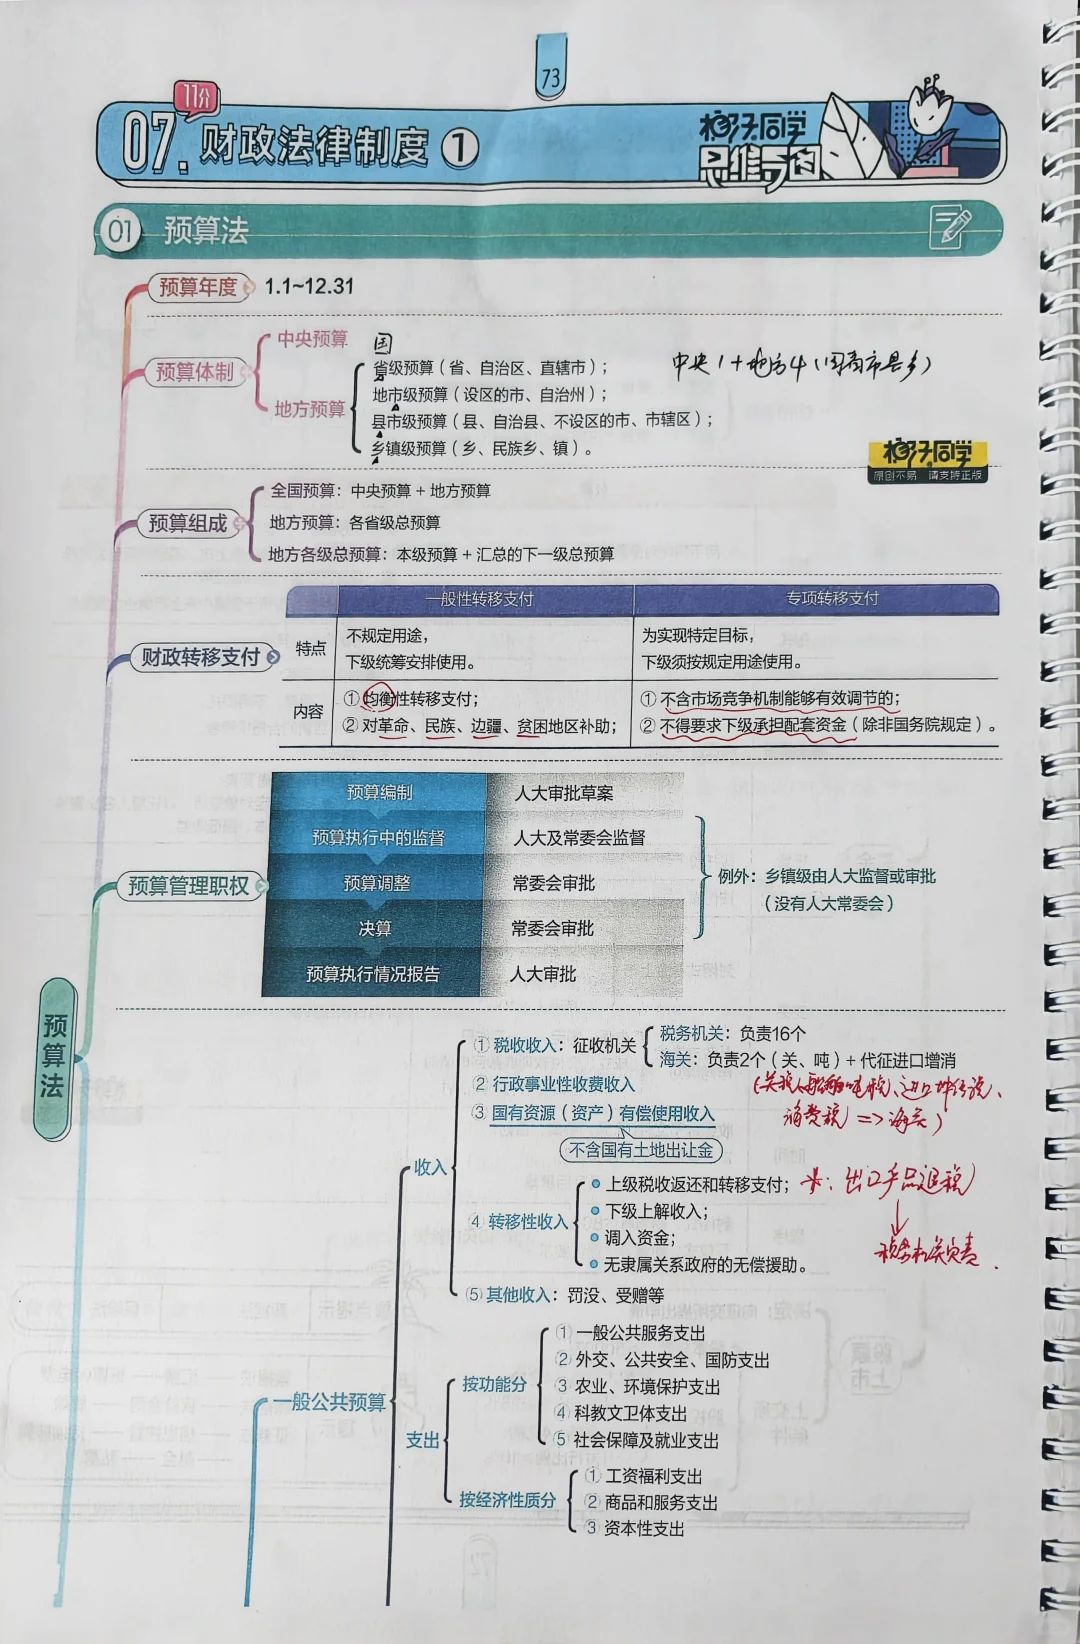 73
11分
07. 财政法律制度 1
椰子同学
思维导图
01 预算法
预算年度 1.1~12.31
预算体制
中央预算
国
地方预算
省级预算（省、自治区、直辖市）；
中央1+地方4（国省市县乡）
地市级预算（设区的市、自治州）；
县市级预算（县、自治县、不设区的市、市辖区）；
乡镇级预算（乡、民族乡、镇）。
椰子同学
原创不易 请支持正版
预算组成
全国预算：中央预算 + 地方预算
地方预算：各省级总预算
地方各级总预算：本级预算 + 汇总的下一级总预算
财政转移支付
一般性转移支付 专项转移支付
特点
不规定用途，
下级统筹安排使用。
为实现特定目标，
下级须按规定用途使用。
内容
①均衡性转移支付；
②对革命、民族、边疆、贫困地区补助；
①不含市场竞争机制能够有效调节的；
②不得要求下级承担配套资金（除非国务院规定）。
预算管理职权
预算编制 人大审批草案
预算执行中的监督 人大及常委会监督
预算调整 常委会审批
决算 常委会审批
预算执行情况报告 人大审批
例外：乡镇级由人大监督或审批
（没有人大常委会）
预算法
一般公共预算
收入
①税收收入：征收机关
税务机关：负责16个
海关：负责2个（关、吨）+ 代征进口增消
（关税、船舶吨税、进口增值税、
消费税 => 海关）
②行政事业性收费收入
③国有资源（资产）有偿使用收入
不含国有土地出让金
④转移性收入
上级税收返还和转移支付；
下级上解收入；
调入资金；
无隶属关系政府的无偿援助。
：出口产品退税
税务机关负责.
⑤其他收入：罚没、受赠等
支出
按功能分
①一般公共服务支出
②外交、公共安全、国防支出
③农业、环境保护支出
④科教文卫体支出
⑤社会保障及就业支出
按经济性质分
①工资福利支出
②商品和服务支出
③资本性支出